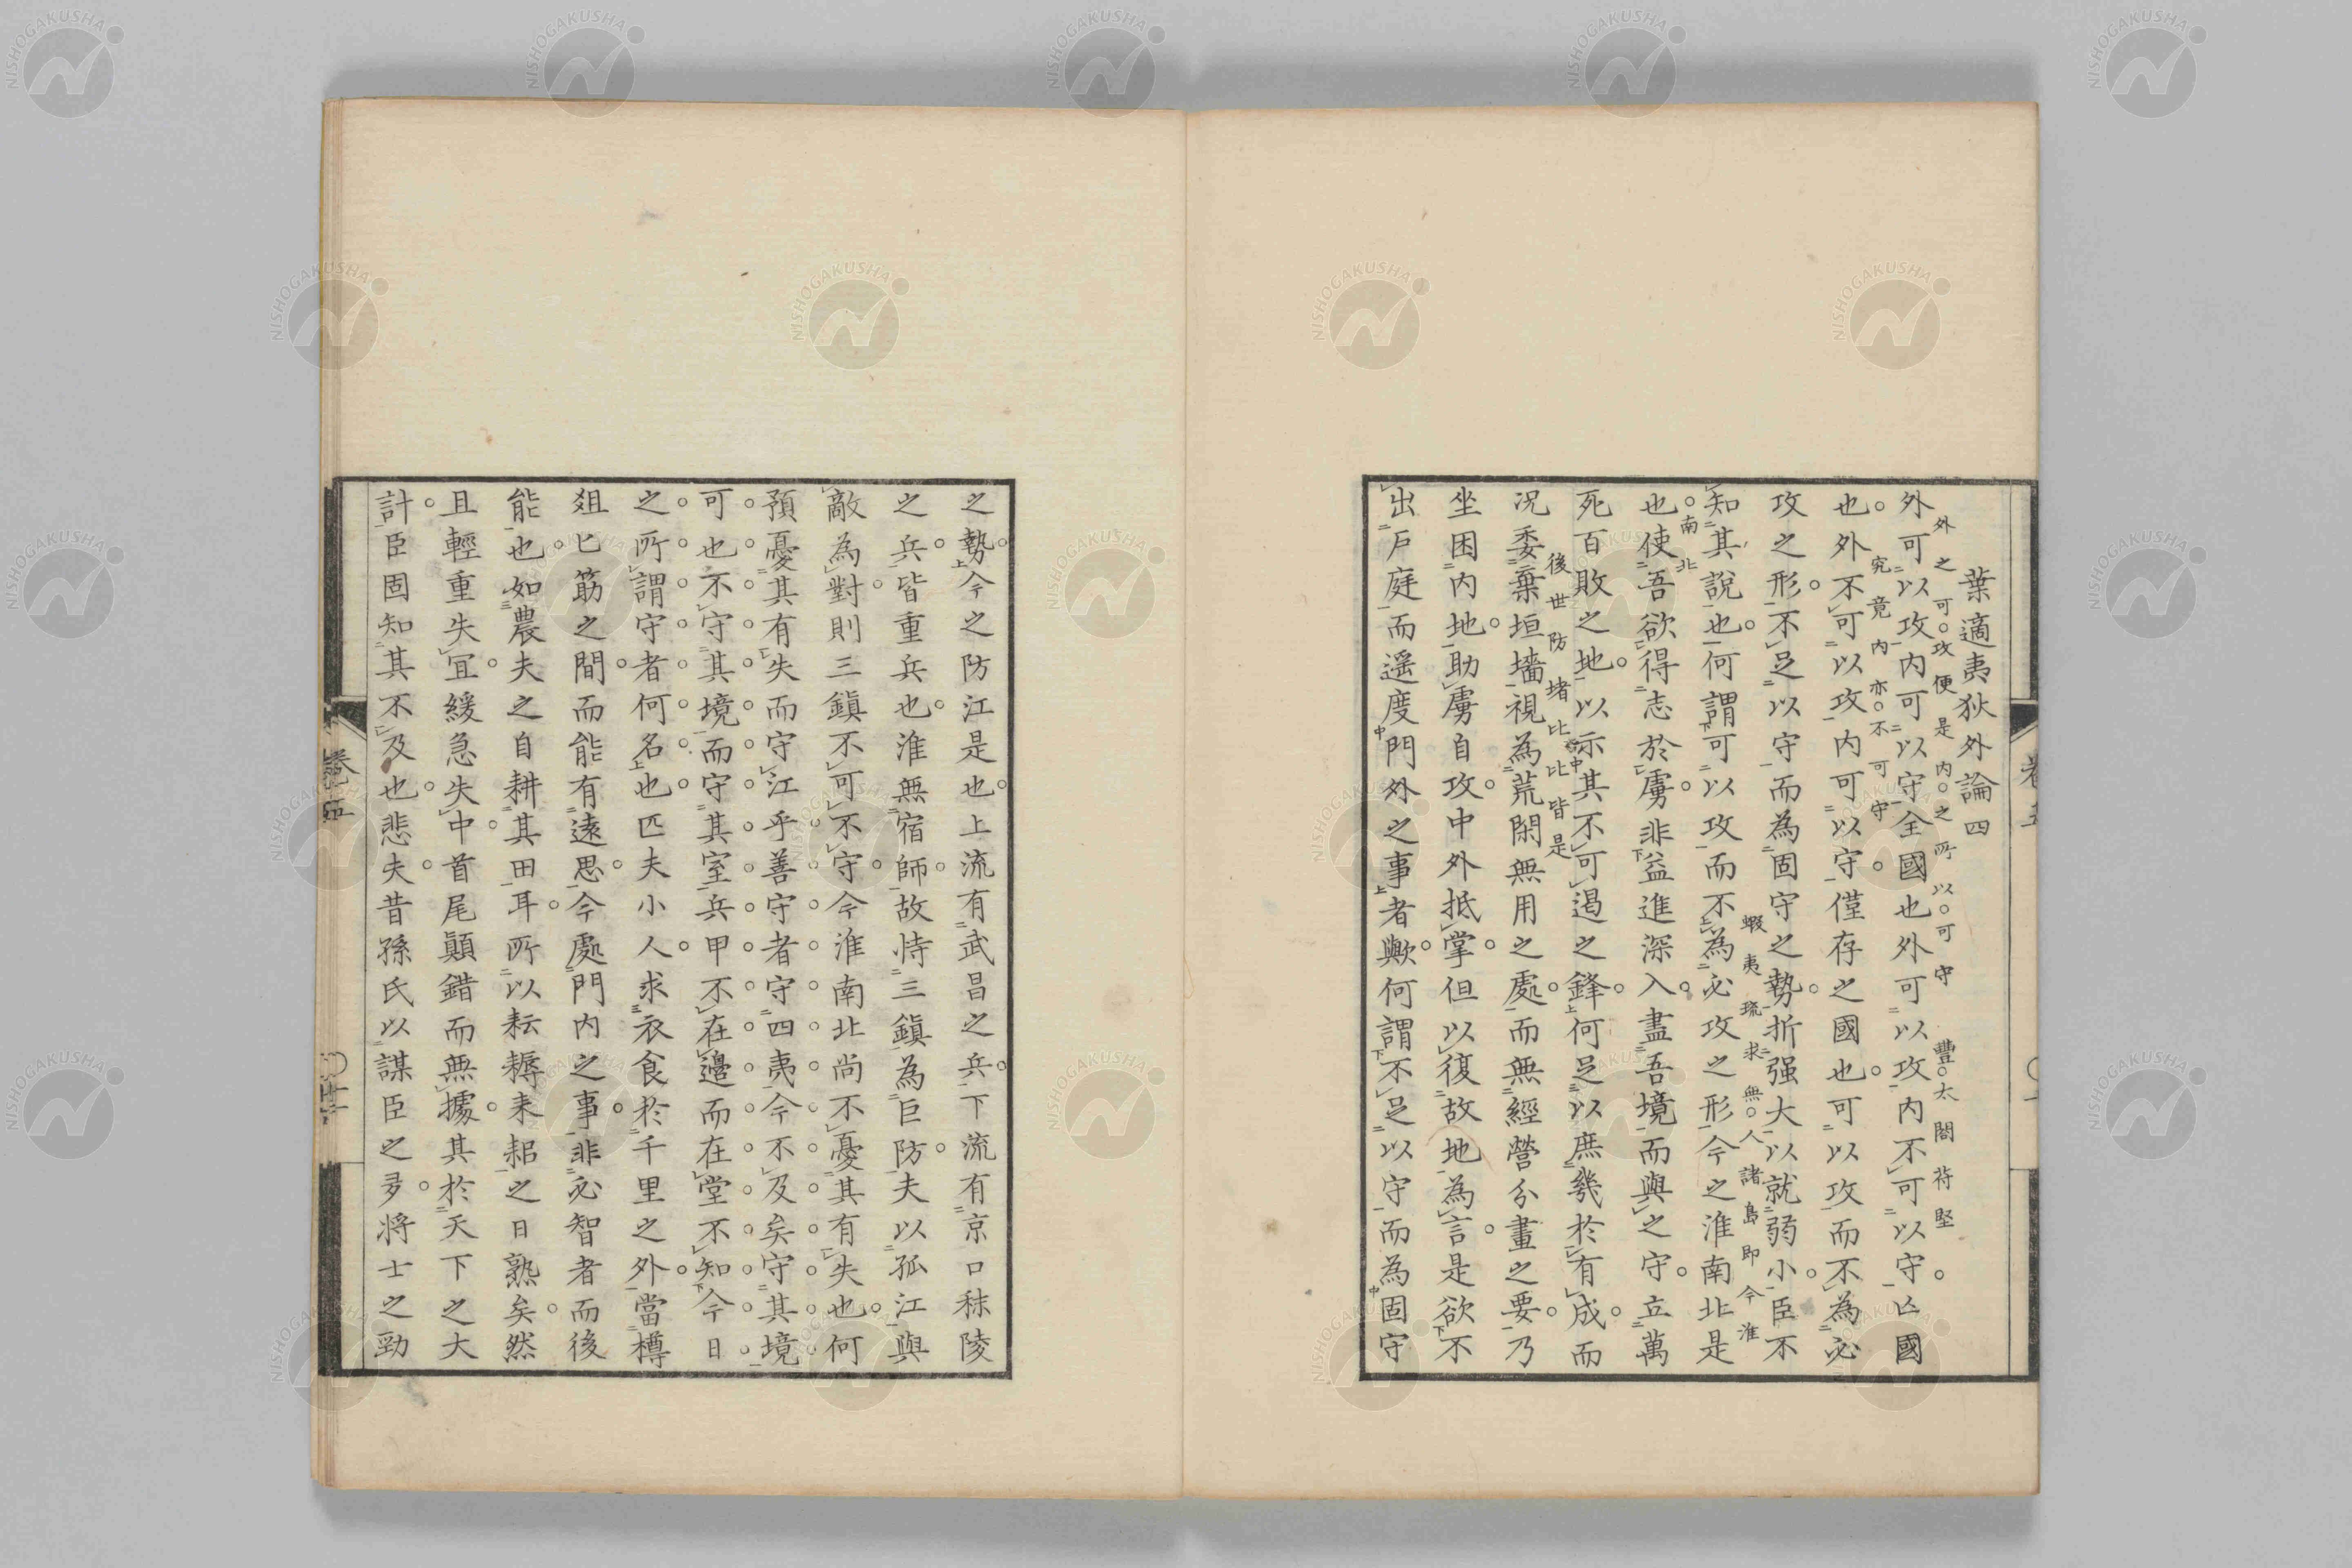 葉適夷狄外論四
外可以攻內可以守全國也外可以攻內不可以守亾國
外之可攻便是內之所以可守
豐太閤苻堅
也外不可以攻內可以守僅存之國也可以攻而不為必
究竟內亦不可守
攻之形不足以守而為固守之勢折强大以就弱小臣不
知其說也何謂可以攻而不為必攻之形今之淮南北是
蝦夷琉求無人諸島即今淮
南北
也使吾欲得志於虜非益進深入盡吾境而與之守立萬
死百敗之地以示其不可遏之鋒何足以庶幾於有成而
況委棄垣墻視為荒閑無用之處而無經營分畫之要乃
後世防堵比比皆是
坐困內地助虜自攻中外抵掌但以復故地為言是欲不
出戶庭而遥度門外之事者歟何謂不足以守而為固守
之勢今之防江是也上流有武昌之兵下流有京口秣陵
之兵皆重兵也淮無宿師故恃三鎮為巨防夫以孤江與
敵為對則三鎮不可不守今淮南北尚不憂其有失也何
預憂其有失而守江乎善守者守四夷今不及矣守其境
可也不守其境而守其室兵甲不在邊而在堂不知今日
之所謂守者何名也匹夫小人求衣食於千里之外當樽
爼匕筯之間而能有遠思今處門內之事非必智者而後
能也如農夫之自耕其田耳所以耘耨耒耜之日熟矣然
且輕重失宜緩急失中首尾顛錯而無據其於天下之大
計臣固知其不及也悲夫昔孫氏以謀臣之多將士之勁
卷五